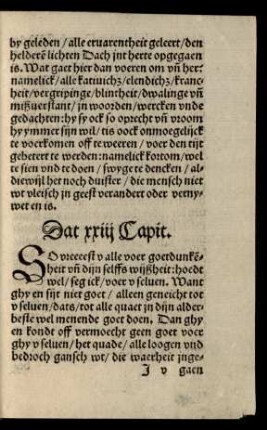 by geleden / alle eruarentheit geleert / den
helderē lichten Dach jnt herte opgegaen
is. Wat gaet hier dan voeren om vn̄ her⸗
namelick / alle katiuichz / elendichz / kranc⸗
heit / vergripinge / blintheit / dwalinge vn̄
miszuerstant / jn woorden / wercken vnde
gedachten: hy sy ock so oprecht vn̄ vroom
hy ymmer sijn wil / tis oock onmoegelijck
te voerkomen off te weeren / voer den tijt
gebetert te werden: namelick kortom / wel
te sien vnd te doen / swyge te dencken / al⸗
diewijl het noch duister / die mensch niet
wt vleisch jn geest verandert oder verny⸗
wet en is.
Dat xxiij Capit.
SO vreeest v alle voer goetdunkē⸗
heit vn̄ dijn selffs wijszheit: hoedt
wel / seg ick / voer v seluen. Want
ghy en sijt niet goet / alleen geneicht tot
v seluen / dats / tot alle quaet jn dijn alder⸗
beste wel menende goet doen. Dan ghy
en kondt off vermoecht geen goet voer
ghy v seluen / het quade / alle loogen vnd
bedroch gansch wt / die waerheit jnge⸗
J v gaen